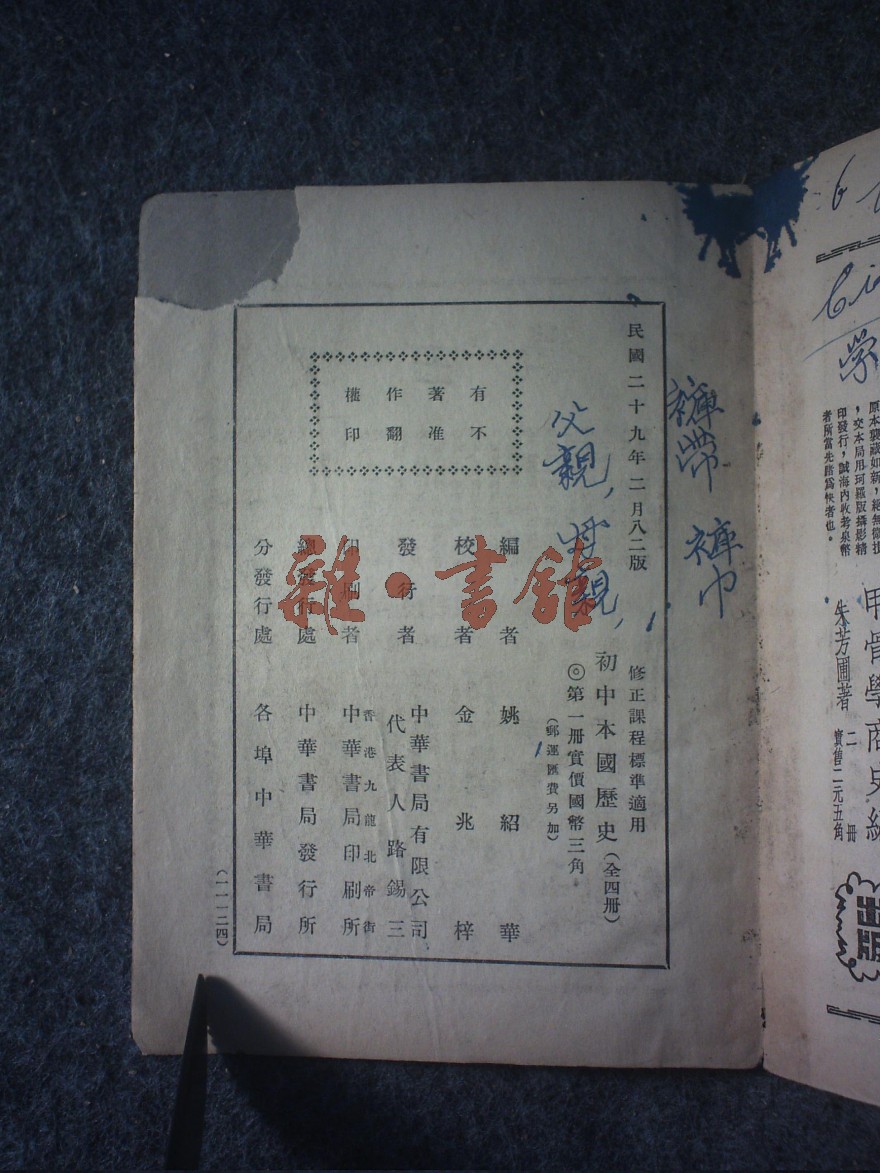 民國二十九年二月八二版
修正課程標準適用
初中本國歷史(全四册)
◎第一册實價國幣三角
(郵運匯費另加)
有不
著准
作翻
權印
編者 姚紹華
校者 金兆梓
發行者 中華書局有限公司
代表人 路錫三
印刷者 香港九龍北帝街
中華書局印刷所
總發行處 中華書局發行所
分發行處 各埠中華書局
(一一一二四)
褲帶 褲巾
父親, 母親,
雜·書館
學
原本裝潢如新,絕無微損
,交本局用珂羅版攝影精
印發行,誠海內收考泉幣
者所當先睹爲快者也。
甲骨學商史編
朱芳圃著 二册
實售二元五角
出版